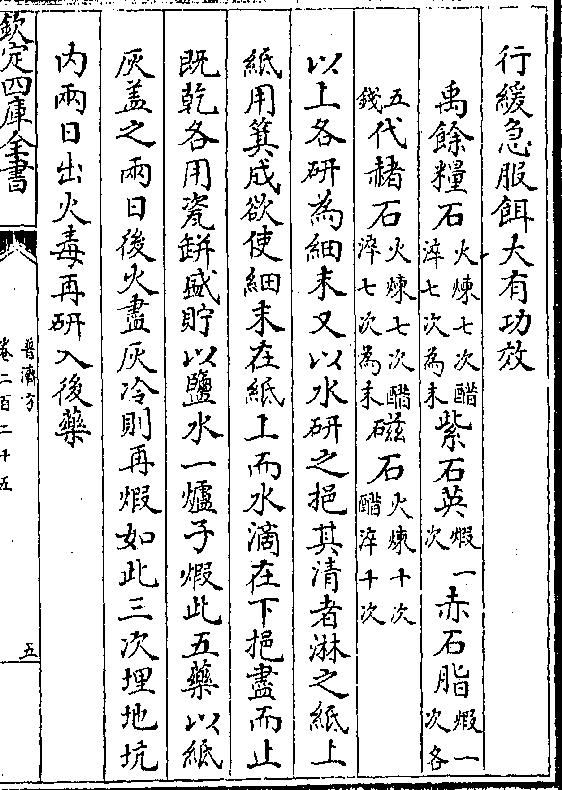 行緩急服餌大有功效
禹餘糧石火煉七次醋淬七次為末紫石英煆一次赤石脂煆一次各
五錢代赭石火煉七次醋淬七次為末磁石火煉十次醋淬十次
以上各研為細末又以水研之挹其清者淋之紙上
紙用箕成欲使細末在紙上而水滴在下挹盡而止
既乾各用瓷缾盛貯以鹽水一爐子煆此五藥以紙
灰盖之兩日後火盡灰冷則再煆如此三次埋地坑
内兩日出火毒再研入後藥
欽定四庫全書
普濟方
卷二百二十五
五